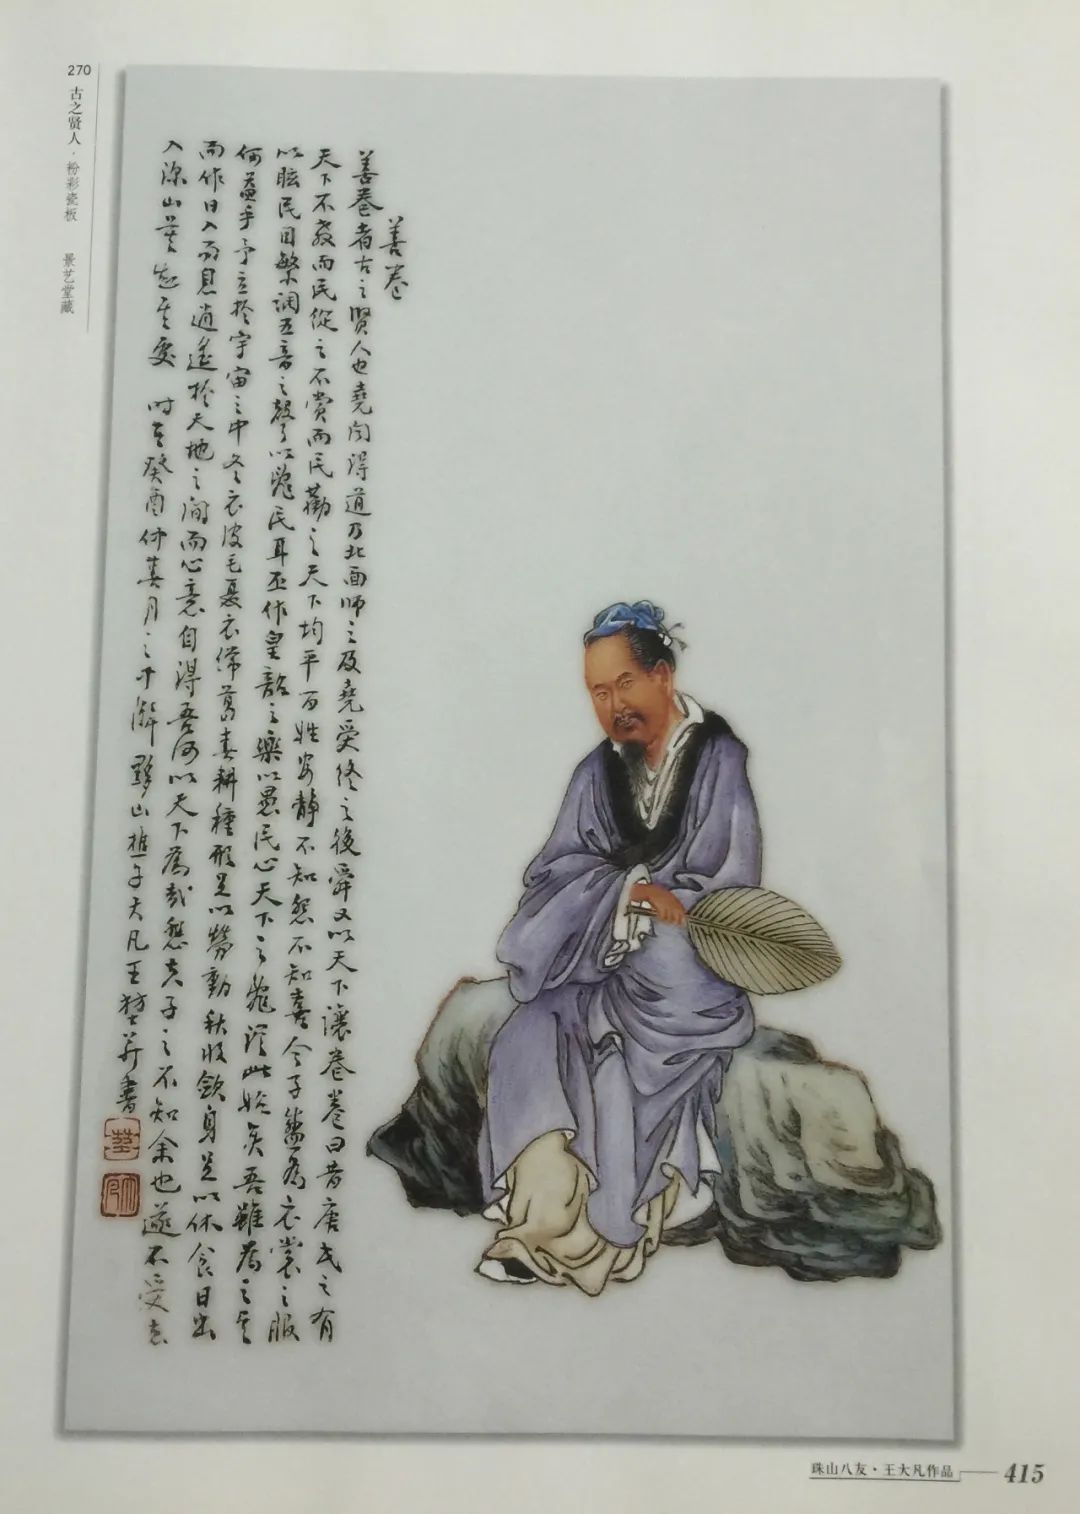 270 古之贤人·粉彩瓷板 景艺堂藏
善卷
善卷者古之賢人也堯闻得道乃北面師之及堯受终之後舜又以天下讓卷卷曰昔唐氏之有
天下不教而民從之不赏而民勸之天下均平百姓安静不知怨不知喜今子盛為衣裳之服
以眩民目繁调五音之聲以亂民耳丕作皇韶之樂以愚民心天下之亂從此始矣吾雖為之其
何益乎予立於宇宙之中冬衣皮毛夏衣絺葛春耕種形足以勞動秋收斂身足以休食日出
而作日入而息逍遥於天地之间而心意自得吾何以天下為哉悲夫子之不知余也遂不受去
入深山莫知其處 时在癸酉仲春月之下澣 黟山樵子大凡王堃并書
珠山八友·王大凡作品 415